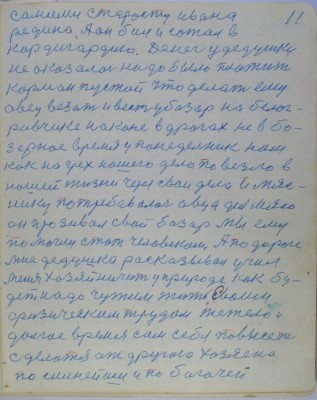 самими старосту ивана 11
редина. Аон бил и сожал в
кардигардию. Денег у дедушки
не оказалос надо было платит
карман пустой что делат ему
овец везат и вести у базар на
на коне в дорогах не в ба-
зарное время у понеделник нам
как на грех нашего дело повезло в
нашей жизни чрез сваи дела и мяс-
нику потребавалос овца для мясо
он прозивал свой базар мы ему
помагли стат человеком. А по дароге
мне дедушка расказивал учил
меня хозяйничит у природе как бу-
дет надо чужим жит. Своим
физическим трудом тежело и
долгое время сам себя повысет
сделатся от другого хозяена
по силнейши и по багачей